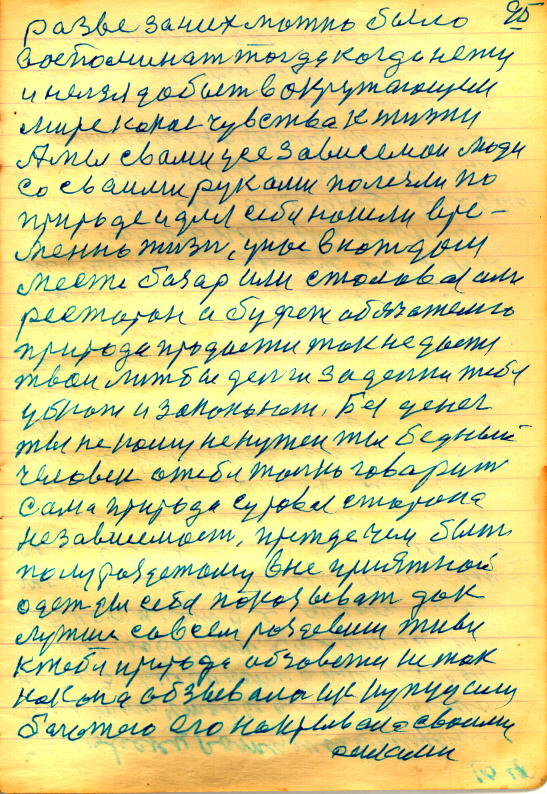 95
разве за них можно было
воспоминат тогда когда нету
и нелзя добыт в окружающем
мире какое чувства к жизни
А мы свами усе зависемои люди
со сваими руками полезли по
природе и для себя нашли вре-
менно жизн, у нас в каждом
месте базар или столовая или
ресторан а буфет обязателно
природа продасти так не дасти
твои литбы денги за денги тебя
уброт и закопают. Без денег
ты не кому не нужен ты бедный
человек о тебе точно говарит
сама природа суровая сторона
независемост, прежде чем быть
полураздетому в не приятной
одежды себя показыват дак
лутши совсем раздевши живи
к тебе природа обзовети не так
как она обзывала их купцу силу
богатого его накрывала своими
силами